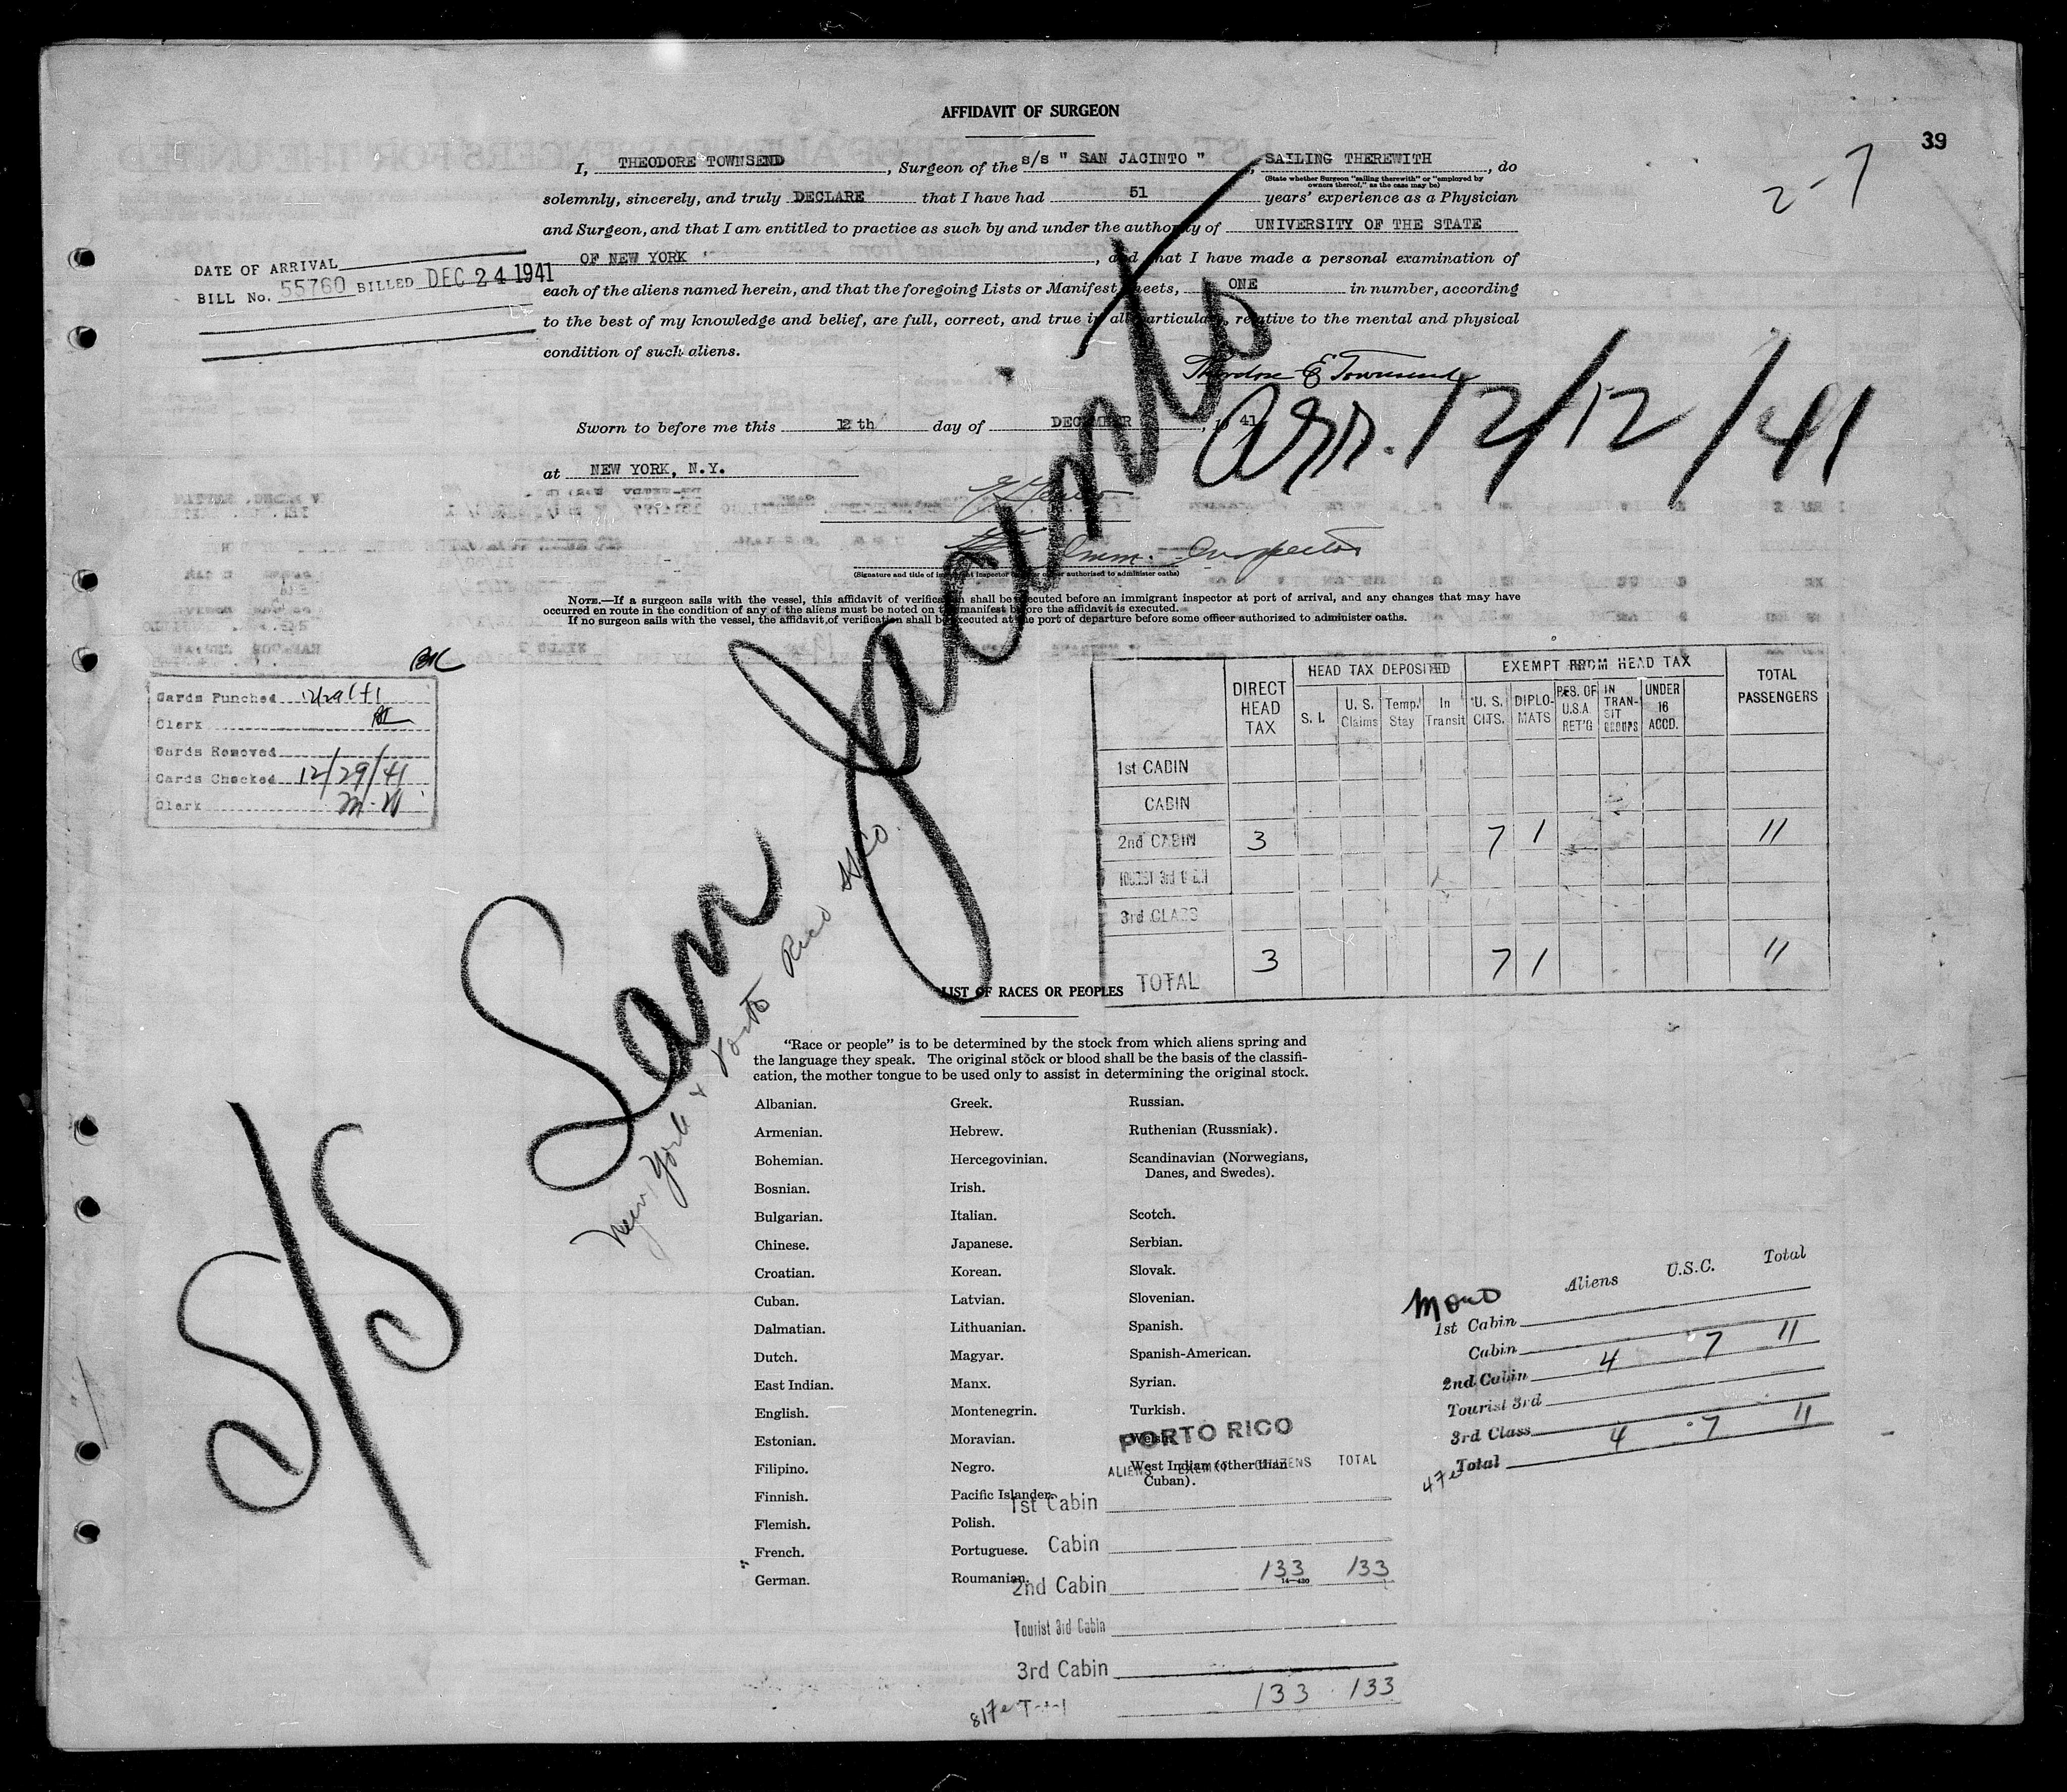 AFFIDAVIT OF SURGEON
39
2-7
I, THEODORE TOWNSEND, Surgeon of the s/s " SAN JACINTO ", SAILING THEREWITH, do
(State whether Surgeon "sailing therewith" or "employed by owners thereof," as the case may be)
solemnly, sincerely, and truly DECLARE that I have had 51 years' experience as a Physician
and Surgeon, and that I am entitled to practice as such by and under the authority of UNIVERSITY OF THE STATE
OF NEW YORK, and that I have made a personal examination of
each of the aliens named herein, and that the foregoing Lists or Manifest Sheets, ONE in number, according
to the best of my knowledge and belief, are full, correct, and true in all particulars, relative to the mental and physical
condition of such aliens.
DATE OF ARRIVAL
BILL No. 55760 BILLED DEC 24 1941
Theodore E Townsend
Sworn to before me this 12 th day of DECEMBER, 19 41
at NEW YORK, N.Y.
Arr. 12/12/41
Imm. Inspector
(Signature and title of immigrant inspector or other officer authorized to administer oaths)
NOTE.—If a surgeon sails with the vessel, this affidavit of verification shall be executed before an immigrant inspector at port of arrival, and any changes that may have
occurred en route in the condition of any of the aliens must be noted on the manifest before the affidavit is executed.
If no surgeon sails with the vessel, the affidavit of verification shall be executed at the port of departure before some officer authorized to administer oaths.
S/S San Jacinto
New York & Porto Rico SS Co.
Cards Punched 12/29/41
Clerk
Cards Removed
Cards Checked 12/29/41
Clerk M.H
DIRECT HEAD TAX
HEAD TAX DEPOSITED
EXEMPT FROM HEAD TAX
TOTAL PASSENGERS
S. I. U. S. Claims Temp. Stay In Transit U. S. CITS. DIPLOMATS RES. OF U.S.A. RET'G IN TRANSIT GROUPS UNDER 16 ACCD.
1st CABIN
CABIN
2nd CABIN 3 7 1 11
TOURIST 3rd CABIN
3rd CLASS
TOTAL 3 7 1 11
LIST OF RACES OR PEOPLES
"Race or people" is to be determined by the stock from which aliens spring and
the language they speak. The original stock or blood shall be the basis of the classifi-
cation, the mother tongue to be used only to assist in determining the original stock.
Albanian.
Armenian.
Bohemian.
Bosnian.
Bulgarian.
Chinese.
Croatian.
Cuban.
Dalmatian.
Dutch.
East Indian.
English.
Estonian.
Filipino.
Finnish.
Flemish.
French.
German.
Greek.
Hebrew.
Hercegovinian.
Irish.
Italian.
Japanese.
Korean.
Latvian.
Lithuanian.
Magyar.
Manx.
Montenegrin.
Moravian.
Negro.
Pacific Islander.
Polish.
Portuguese.
Roumanian.
Russian.
Ruthenian (Russniak).
Scandinavian (Norwegians,
Danes, and Swedes).
Scotch.
Serbian.
Slovak.
Slovenian.
Spanish.
Spanish-American.
Syrian.
Turkish.
Welsh.
West Indian (other than
Cuban).
14—430
Aliens U.S.C. Total
1st Cabin
Cabin
2nd Cabin 4 7 11
Tourist 3rd
3rd Class
Total 4 7 11
PORTO RICO
ALIENS EXEMPT CITIZENS TOTAL
1st Cabin
Cabin
2nd Cabin 133 133
Tourist 3rd Cabin
3rd Cabin
Total 133 133